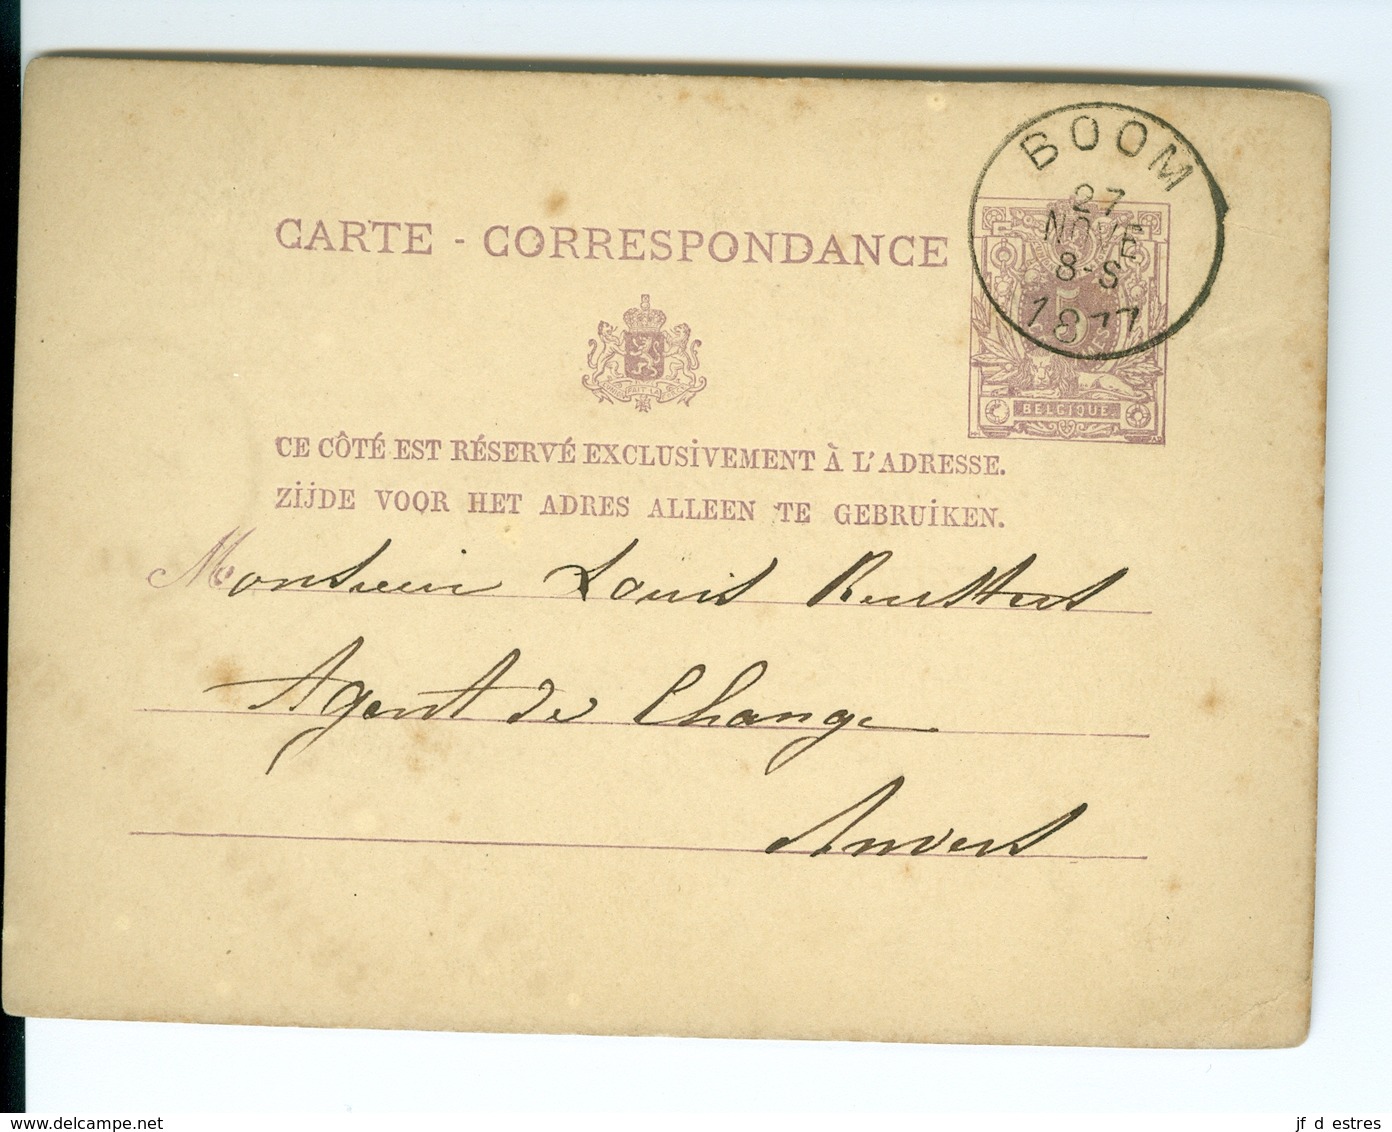 BOOM
27
NOVE
8-S
1877
CARTE - CORRESPONDANCE
5
BELGIQUE
CE CÔTÉ EST RÉSERVÉ EXCLUSIVEMENT À L'ADRESSE.
ZIJDE VOOR HET ADRES ALLEEN TE GEBRUIKEN.
Monsieur Louis
Agent de Change
Anvers
delcampe.net
jf d estres